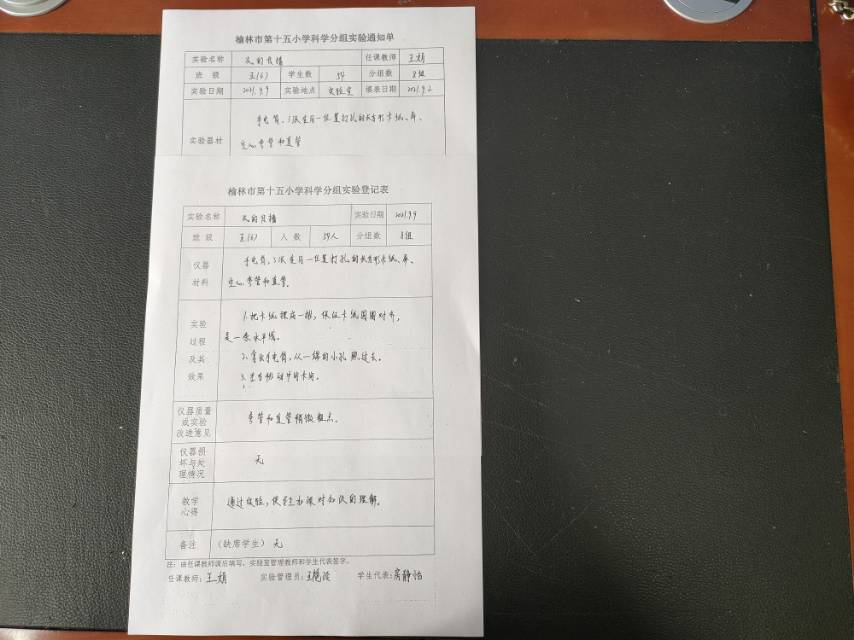 榆林市第十五小学科学分组实验通知单
实验名称 光的传播 任课教师 王娟
班 级 五(6) 学生数 54 分组数 8组
实验日期 2021.9.9 实验地点 实验室 填表日期 2021.9.2
手电筒、3张在同一位置打孔的长方形卡纸、屏、
实验器材 空心弯管和直管
榆林市第十五小学科学分组实验登记表
实验名称 光的传播 实验日期 2021.9.9
班 级 五(6) 人 数 54人 分组数 8组
仪器 手电筒、3张在同一位置打孔的长方形卡纸、屏、
材料 空心弯管和直管。
实验 1.把卡纸摆成一排,保证卡纸圆圈对齐,
过程 是一条水平线。
及其 2.拿出手电筒,从一端的小孔照过去。
效果 3.左右移动中间卡片。
仪器质量
或实验 弯管和直管稍微粗点。
改进意见
仪器损
坏与处 无
理情况
教学 通过实验,使学生加深对知识的理解。
心得
备注 (缺席学生) 无
注:由任课教师课后填写,实验室管理教师和学生代表签字。
任课教师:王娟 实验管理员: 学生代表: